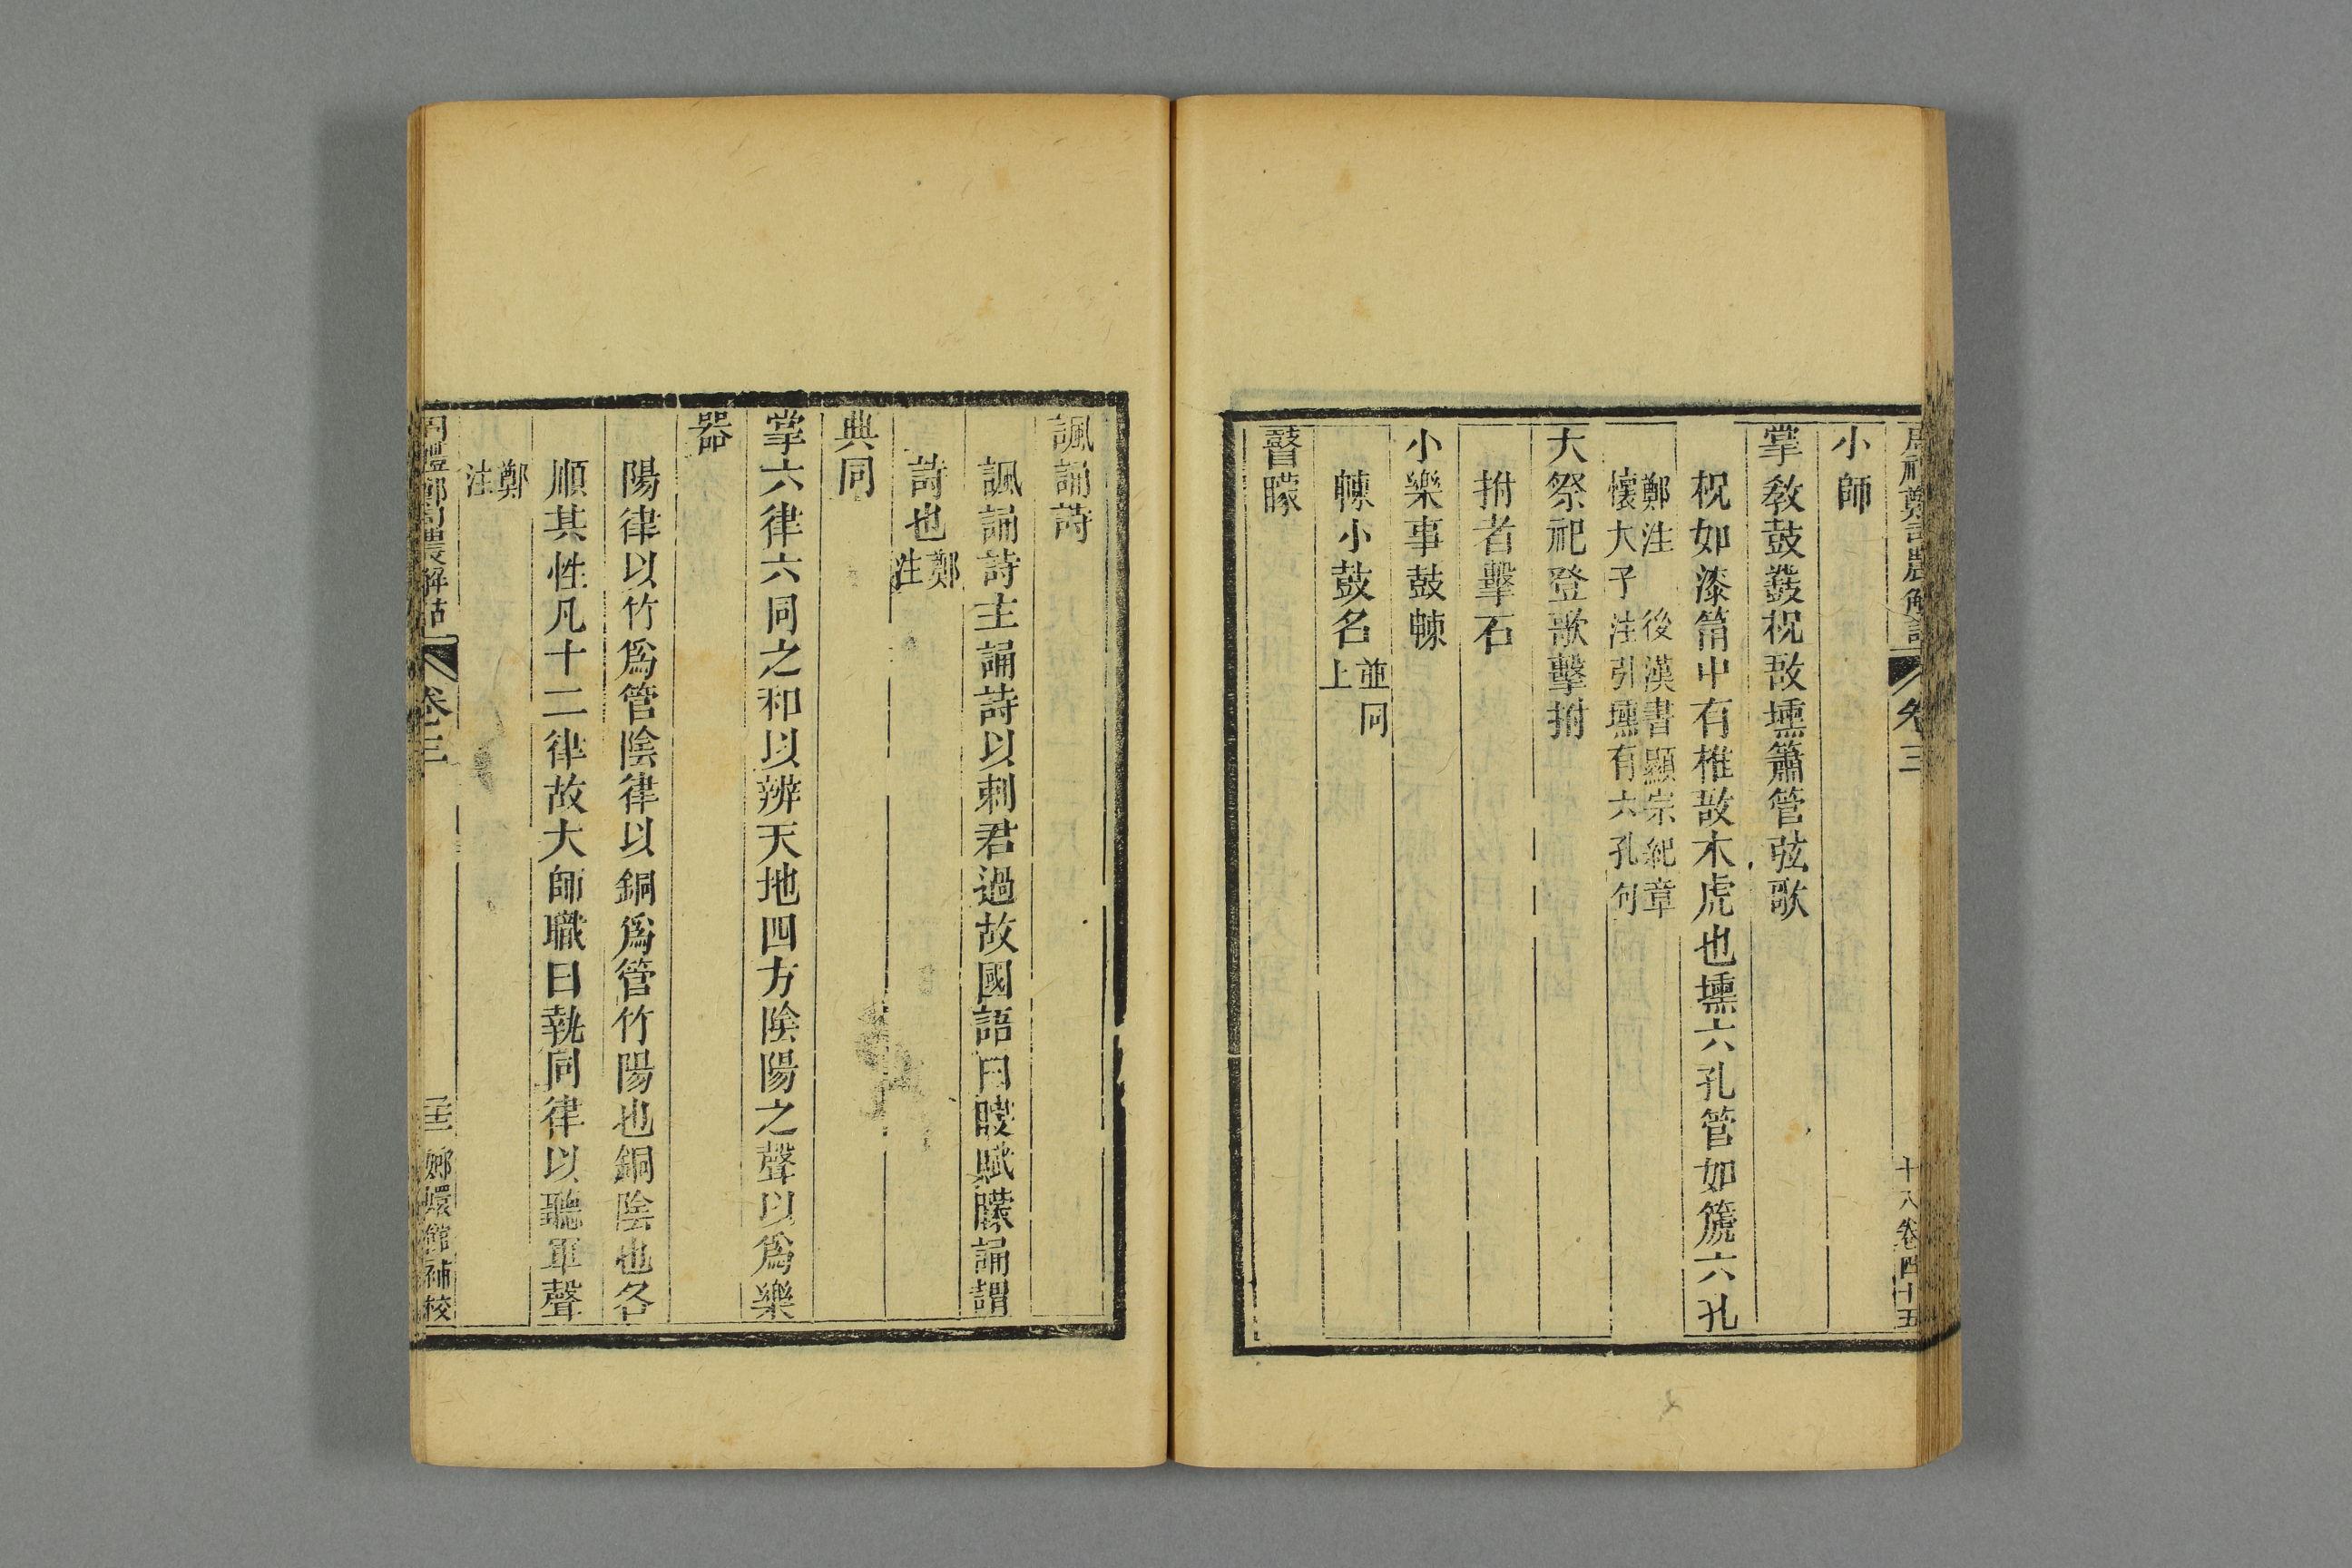 周禮鄭司農解詁 卷三 十八卷四十五
小師
掌敎鼓鼗柷敔壎簫管弦歌
柷如漆筩中有椎敔木虎也壎六孔管如篪六孔
鄭注 後漢書顯宗紀章
懷大子注引壎有六孔句
大祭祀登歌擊拊
拊者擊石
小樂事鼓朄
朄小鼓名並同上
瞽矇
諷誦詩
諷誦詩主誦詩以刺君過故國語曰瞍賦矇誦謂
詩也鄭注
典同
掌六律六同之和以辨天地四方陰陽之聲以爲樂
器
陽律以竹爲管陰律以銅爲管竹陽也銅陰也各
順其性凡十二律故大師職曰執同律以聽軍聲
鄭注
周禮鄭司農解詁 卷三 嫏嬛館補校